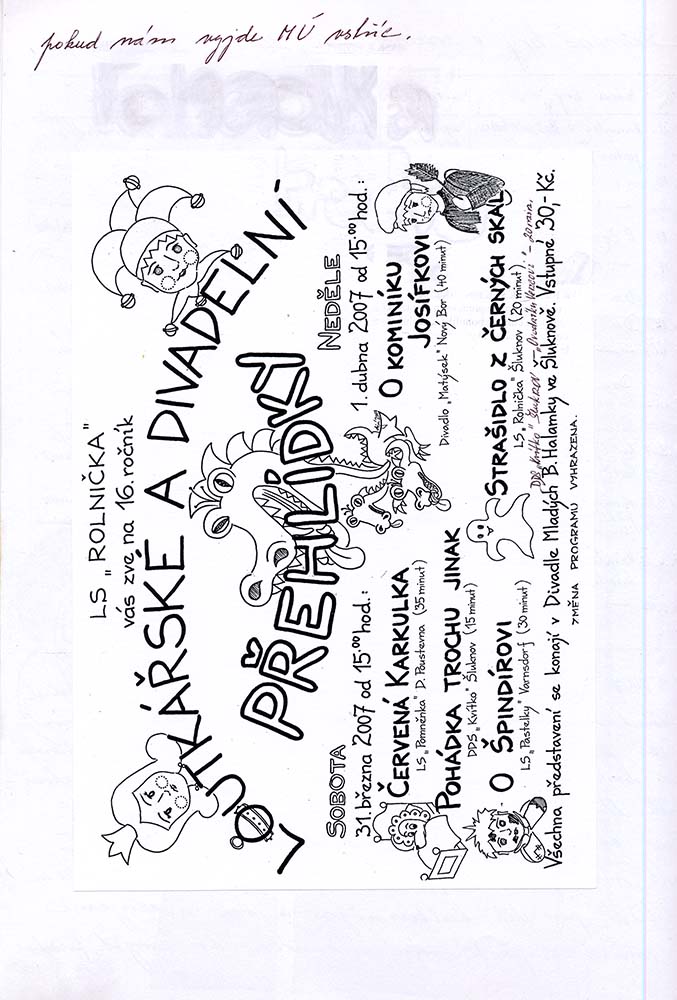 pokud nám vyjde MÚ vstříc.
LS „ROLNIČKA"
vás zve na 16. ročník
LOUTKÁŘSKÉ A DIVADELNÍ
PŘEHLÍDKY
SOBOTA
31. března 2007 od 15.00 hod.:
ČERVENÁ KARKULKA
LS „Pomněnka" D. Poustevna (35 minut)
POHÁDKA TROCHU JINAK
DDS „Kvítko" Šluknov (15 minut)
O ŠPINDÍROVI
LS „Pastelky" Varnsdorf (30 minut)
NEDĚLE
1. dubna 2007 od 15.00 hod.:
O KOMINÍKU
JOSÍFKOVI
Divadlo „Matýsek" Nový Bor (40 minut)
STRAŠIDLO Z ČERNÝCH SKAL
LS „Rolnička" Šluknov (20 minut)
DDS „Kvítko" Šluknov –
Všechna představení se konají v Divadle Mladých B. Halamky ve Šluknově. Vstupné 30,- Kč.
ZMĚNA PROGRAMU VYHRAZENA.